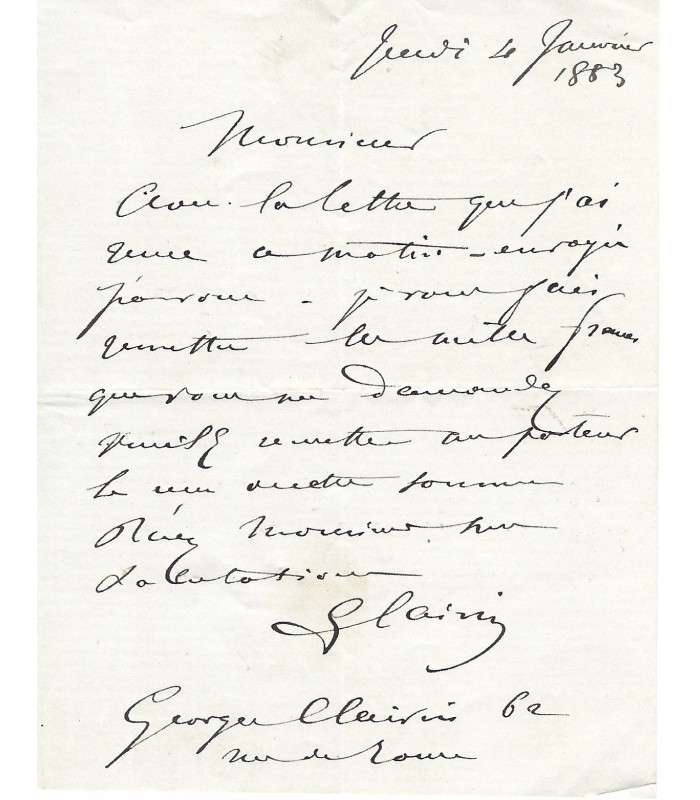 Jeudi 4 Janvier
1883
Monsieur
Avec la lettre que j'ai
reçue ce matin - envoyée
par vous - je vous fais
remettre les mille francs
que vous me demandez
veuillez remettre au porteur
le reçu de cette somme
Recevez Monsieur mes
Salutations
G Clairin
Georges Clairin 62
rue de Rome